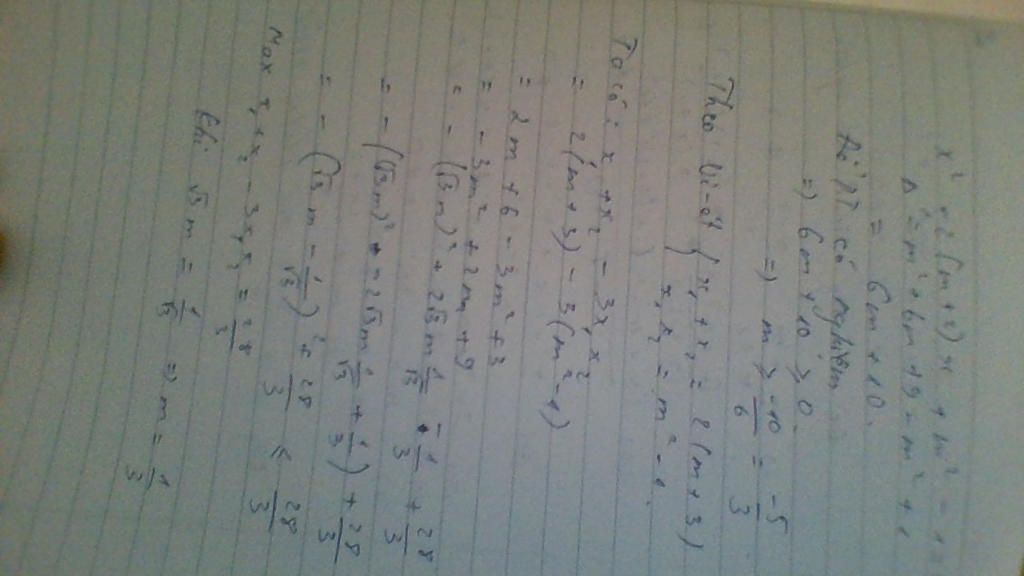 x² - 2(m+3)x + m² - 1 =
Δ' = m² + 6m + 9 - m² + 1
= 6m + 10.
Để PT có nghiệm
=> 6m + 10 ≥ 0.
=> m ≥ -10/6 = -5/3
Theo Vi-ét { x₁ + x₂ = 2(m+3)
x₁x₂ = m² - 1.
Ta có: x₁ + x₂ - 3x₁x₂
= 2(m+3) - 3(m²-1)
= 2m + 6 - 3m² + 3
= - 3m² + 2m + 9
= - (√3m)² + 2√3m 1/√3 - 1/3 + 28/3
= - ((√3m)² - 2√3m 1/√3 + 1/3) + 28/3
= - (√3m - 1/√3)² + 28/3 ≤ 28/3
Max x₁ + x₂ - 3x₁x₂ = 28/3
Khi √3m = 1/√3 => m = 1/3